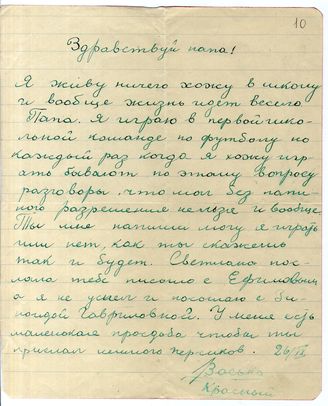 10
Здравствуй папа!
Я живу ничего хожу в школу
и вообще жизнь идет весело
Папа. Я играю в первой шко-
льной команде по футболу но
каждый раз когда я хожу игр-
ать бывают по этому вопросу
разговоры, что мол без папи-
ного разрешения нельзя и вообще
Ты мне напиши могу я играть
или нет, как ты скажешь
так и будет. Светлана пос-
лала тебе письмо с Ефимовым
а я не успел и посылаю с
Гавриловной. У меня есть
маленькая просьба чтобы ты
прислал немного персиков. 26/IX
Васька
Красный